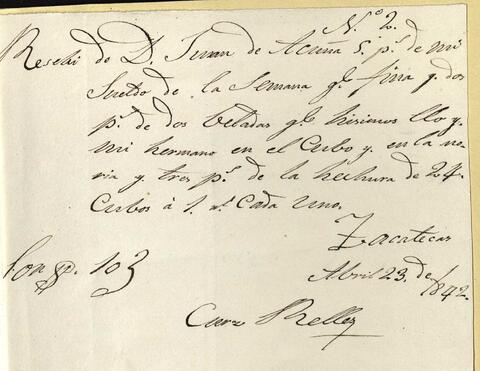 N.º 2.
Resebi de D. Juan de Acuña 5. p.s de mi
Sueldo de la Semana q.e fina y dos
p.s de dos beladas q.e hisimos Yo y
mi hermano en el Cubo y en la no
ria y tres p.s de la hechura de 24
Cubos á 1. r.l Cada Uno.
Zacatecas
Abril 23. de
1842.
Son p. 10 3
Cruz Rellez